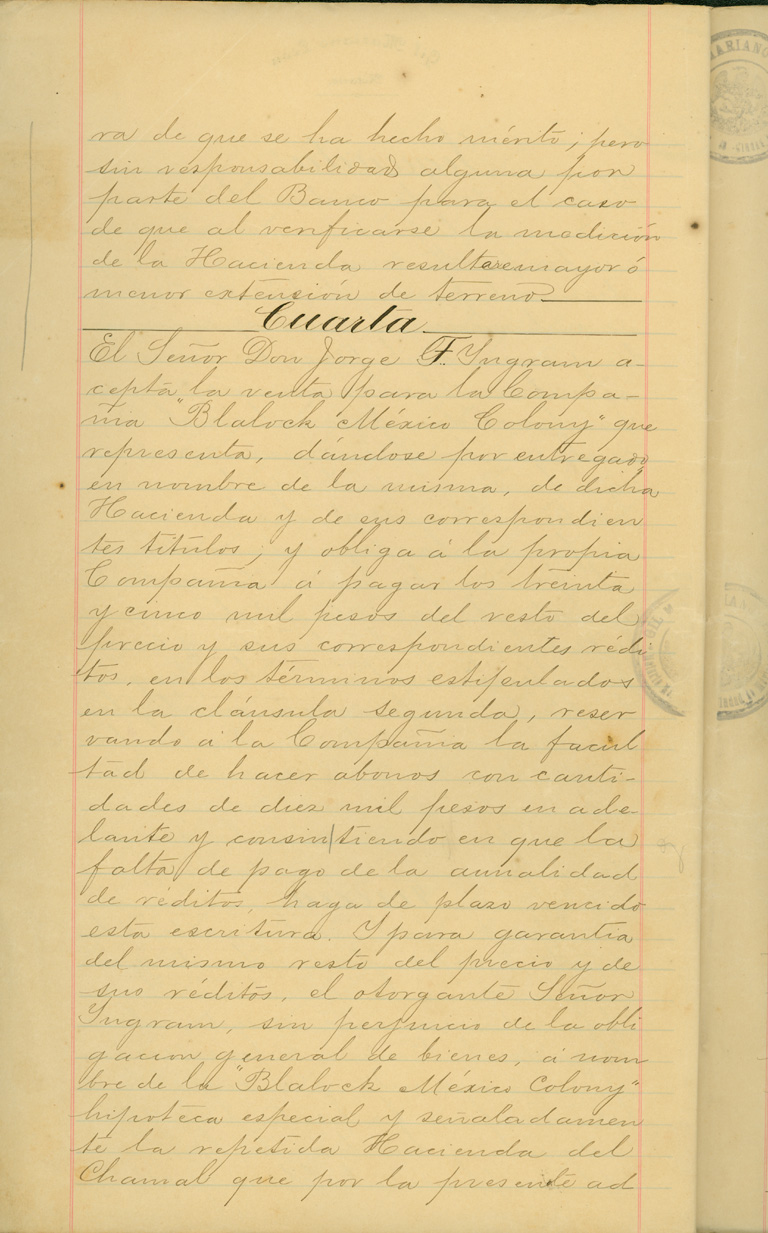 ra de que se ha hecho mérito; pero
sin responsabilidad alguna por
parte del Banco para el caso
de que al verificarse la medición
de la Hacienda resultase mayor ó
menor extensión de terreno
Cuarta
El Señor Don Jorge F. Yngram a-
cepta la venta para la Compa-
ñia "Blalock México Colony" que
representa, dándose por entregado
en nombre de la misma, de dicha
Hacienda y de sus correspondien
tes títulos; y obliga á la propia
Compañia á pagar los treinta
y cinco mil pesos del resto del
precio y sus correspondientes rédi
tos, en los términos estipulados
en la cláusula segunda, reser
vando á la Compañia la facul
tad de hacer abonos con canti-
dades de diez mil pesos en ade-
lante y consintiendo en que la
falta de pago de la anualidad
de réditos, haga de plazo vencido
esta escritura. Y para garantia
del mismo resto del precio y de
sus réditos, el otorgante Señor
Yngram, sin perjuicio de la obli
gacion general de bienes, á nom
bre de la "Blalock México Colony"
hipoteca especial y señaladamen
te la repetida Hacienda del
Chamal que por la presente ad